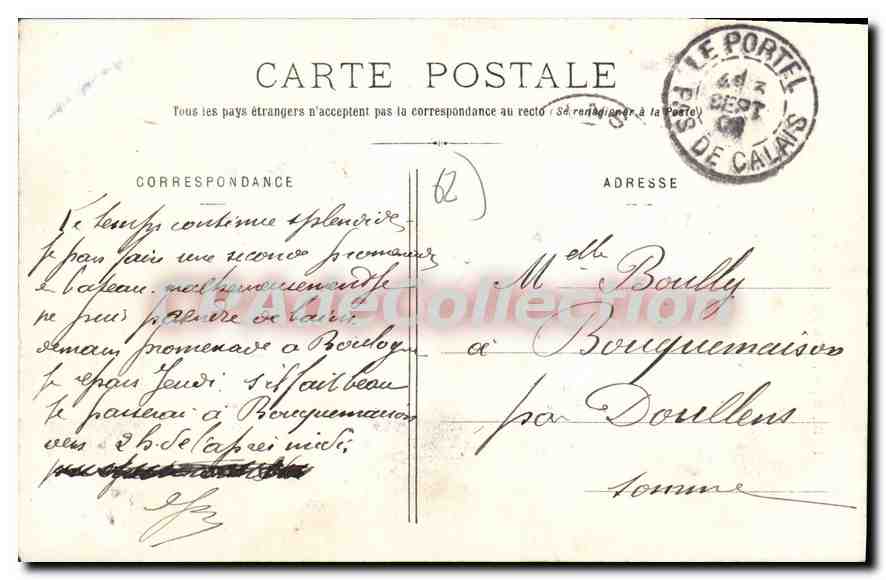 CARTE POSTALE
Tous les pays étrangers n'acceptent pas la correspondance au recto (Se renseigner à la Poste)
LE PORTEL
SEPT
PAS DE CALAIS
CORRESPONDANCE
62
ADRESSE
Le temps continue splendide
Je pars faire une seconde promenade
en bateau. malheureusement je
ne puis prendre de bains
demain promenade à Boulogne
Je repars Jeudi. s'il fait beau
Je passerai à Bouquemaison
vers 2h. de l'après midi,
Melle Boully
à Bouquemaison
par Doullens
somme
CPArteCollection